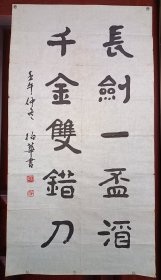 長劍一盃酒
千金雙錯刀
壬午仲冬